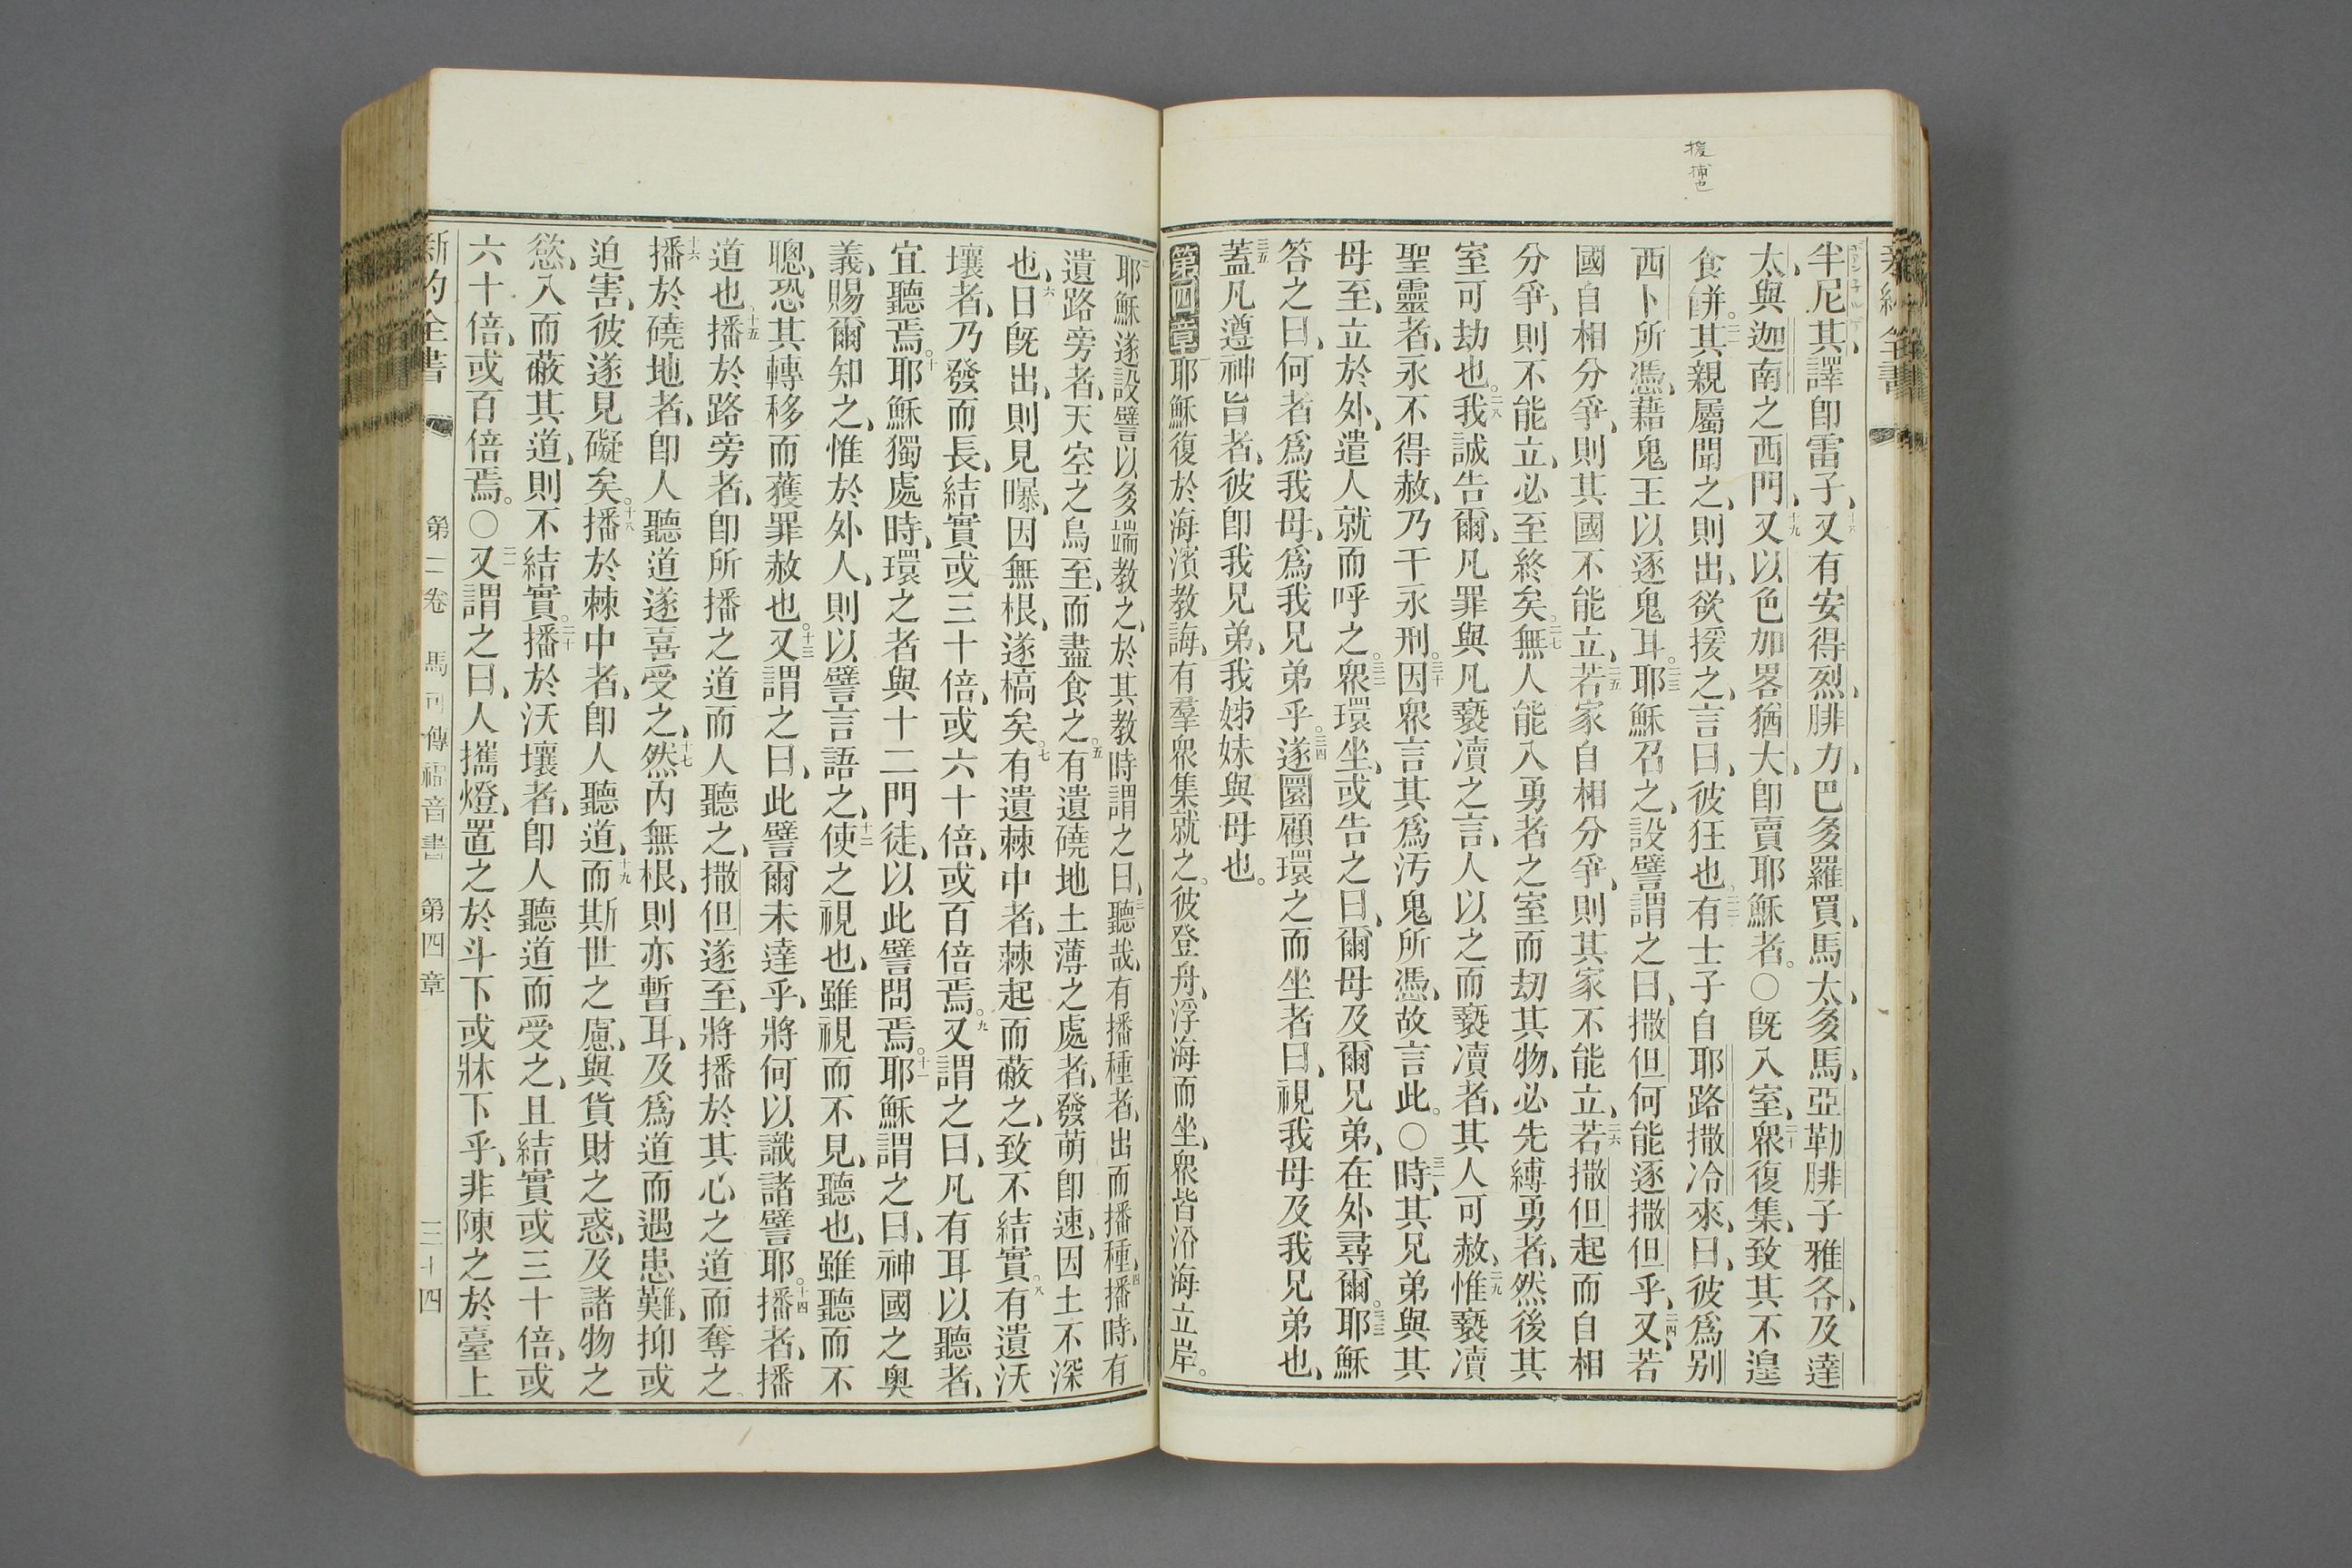 援
捕也
新約全書
半尼其、譯卽雷子、十八又有安得烈、腓力、巴多羅買、馬太、多馬、亞勒腓子雅各、及達
太、與迦南之西門、十九又以色加畧猶大、卽賣耶穌者。〇旣入室、二十衆復集、致其不遑
食餅。二一其親屬聞之、則出、欲援之、言曰、彼狂也、二二有士子自耶路撒冷來、曰、彼爲别
西卜所憑、藉鬼王以逐鬼耳。二三耶穌召之、設譬謂之曰、撒但何能逐撒但乎、二四又若
國自相分爭、則其國不能立、二五若家自相分爭、則其家不能立、二六若撒但起而自相
分爭、則不能立、必至終矣。二七無人能入勇者之室而刧其物、必先縛勇者、然後其
室可劫也。二八我誠告爾、凡罪與凡褻凟之言、人以之而褻凟者、其人可赦、二九惟褻凟
聖靈者、永不得赦、乃干永刑。三十因衆言其爲汚鬼所憑、故言此。〇三一時、其兄弟與其
母至、立於外、遣人就而呼之。三二衆環坐、或告之曰、爾母及爾兄弟、在外尋爾。三三耶穌
答之曰、何者爲我母、爲我兄弟乎。三四遂圜顧環之而坐者曰、視我母及我兄弟也、
三五蓋凡遵神旨者、彼卽我兄弟、我姊妹與母也。
第四章一耶穌復於海濱教誨、有羣衆集就之。彼登舟、浮海而坐、衆皆沿海立岸。
二耶穌遂設譬以多端教之、於其教時謂之曰、三聽哉、有播種者、出而播種、四播時、有
遺路旁者、天空之鳥至、而盡食之。五有遺磽地土薄之處者、發萌卽速、因土不深
也、六日旣出、則見曝、因無根、遂槁矣。七有遺棘中者、棘起而蔽之、致不結實。八有遺沃
壤者、乃發而長、結實或三十倍、或六十倍、或百倍焉。九又謂之曰、凡有耳以聽者、
宜聽焉。十耶穌獨處時、環之者與十二門徒、以此譬問焉。十一耶穌謂之曰、神國之奥
義、賜爾知之、惟於外人、則以譬言語之、十二使之視也、雖視而不見、聽也、雖聽而不
聰、恐其轉移而獲罪赦也。十三又謂之曰、此譬爾未達乎、將何以識諸譬耶。十四播者、播
道也、十五播於路旁者、卽所播之道而人聽之、撒但遂至、將播於其心之道而奪之、
十六播於磽地者、卽人聽道遂喜受之、十七然內無根、則亦暫耳、及爲道而遇患難、抑或
迫害、彼遂見礙矣。十八播於棘中者、卽人聽道、十九而斯世之慮、與貨財之惑、及諸物之
慾、入而蔽其道、則不結實。二十播於沃壤者、卽人聽道而受之、且結實或三十倍、或
六十倍、或百倍焉。〇二一又謂之曰、人攜燈、置之於斗下或牀下乎、非陳之於臺上
新約全書 第二卷 馬可傳福音書 第四章 三十四